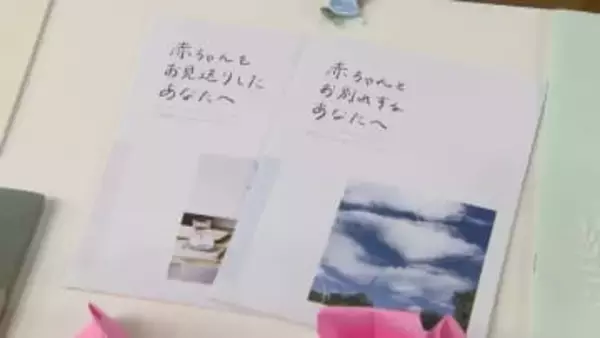 赤ちゃんを
お見送りした
あなたへ
赤ちゃんと
お別れする
あなたへ